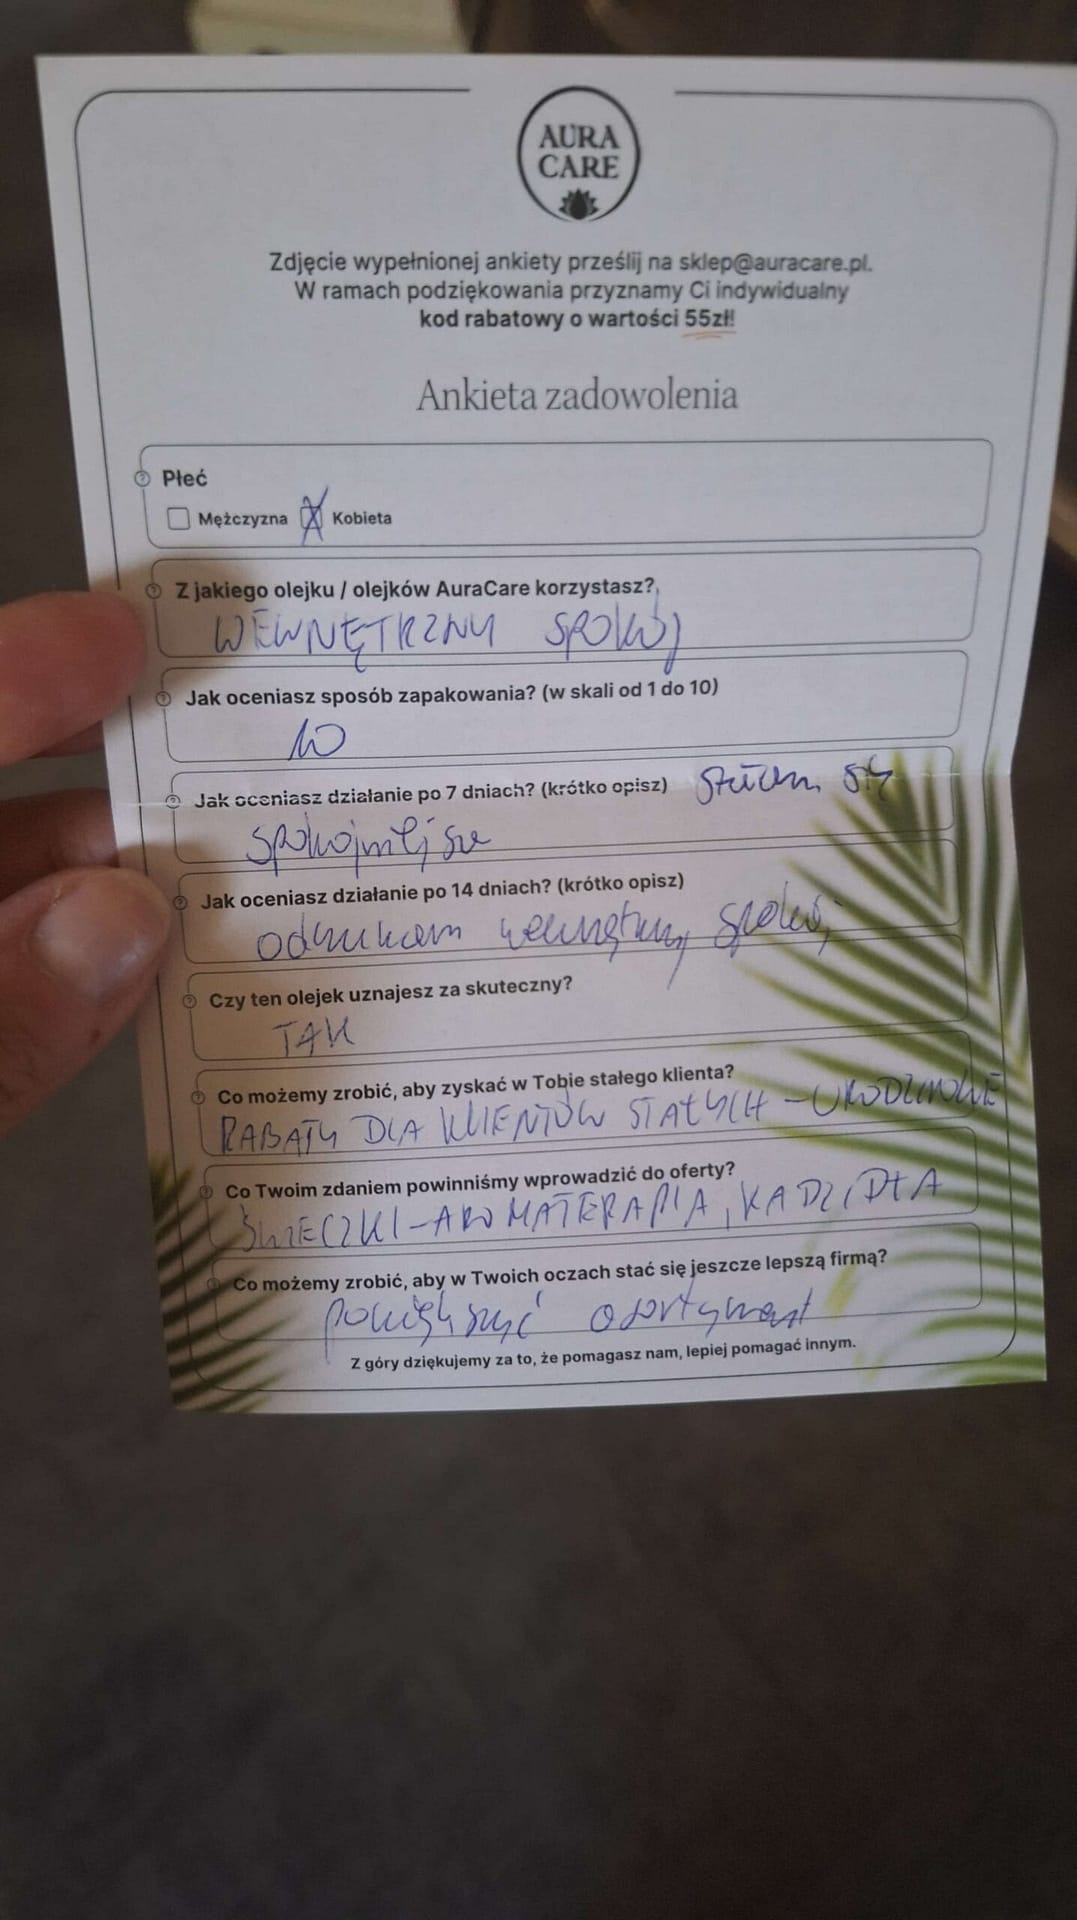 AURA
CARE
Zdjęcie wypełnionej ankiety prześlij na sklep@auracare.pl.
W ramach podziękowania przyznamy Ci indywidualny
kod rabatowy o wartości 55zł!
Ankieta zadowolenia
Płeć
Mężczyzna X Kobieta
Z jakiego olejku / olejków AuraCare korzystasz?
WEWNĘTRZNY SPOKÓJ
Jak oceniasz sposób zapakowania? (w skali od 1 do 10)
10
Jak oceniasz działanie po 7 dniach? (krótko opisz) stałam się
spokojniejsza
Jak oceniasz działanie po 14 dniach? (krótko opisz)
odczuwam wewnętrzny spokój
Czy ten olejek uznajesz za skuteczny?
TAK
Co możemy zrobić, aby zyskać w Tobie stałego klienta?
RABATY DLA KLIENTÓW STAŁYCH - URODZINOWE
Co Twoim zdaniem powinniśmy wprowadzić do oferty?
ŚWIECZKI - AROMATERAPIA, KADZIDŁA
Co możemy zrobić, aby w Twoich oczach stać się jeszcze lepszą firmą?
powiększyć asortyment
Z góry dziękujemy za to, że pomagasz nam, lepiej pomagać innym.